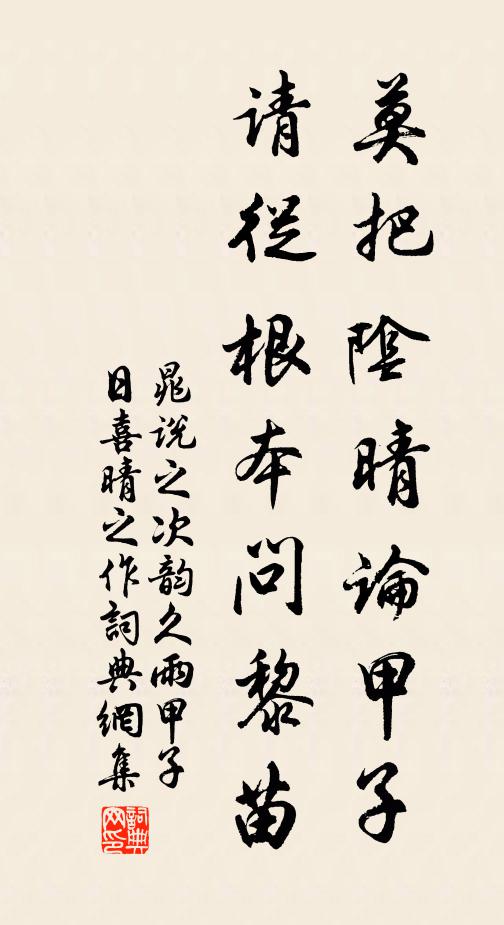 莫把陰晴論甲子
请從根本問黎苗
晁说之次韵久雨甲子
日喜晴之作詞典網集
詞典網印